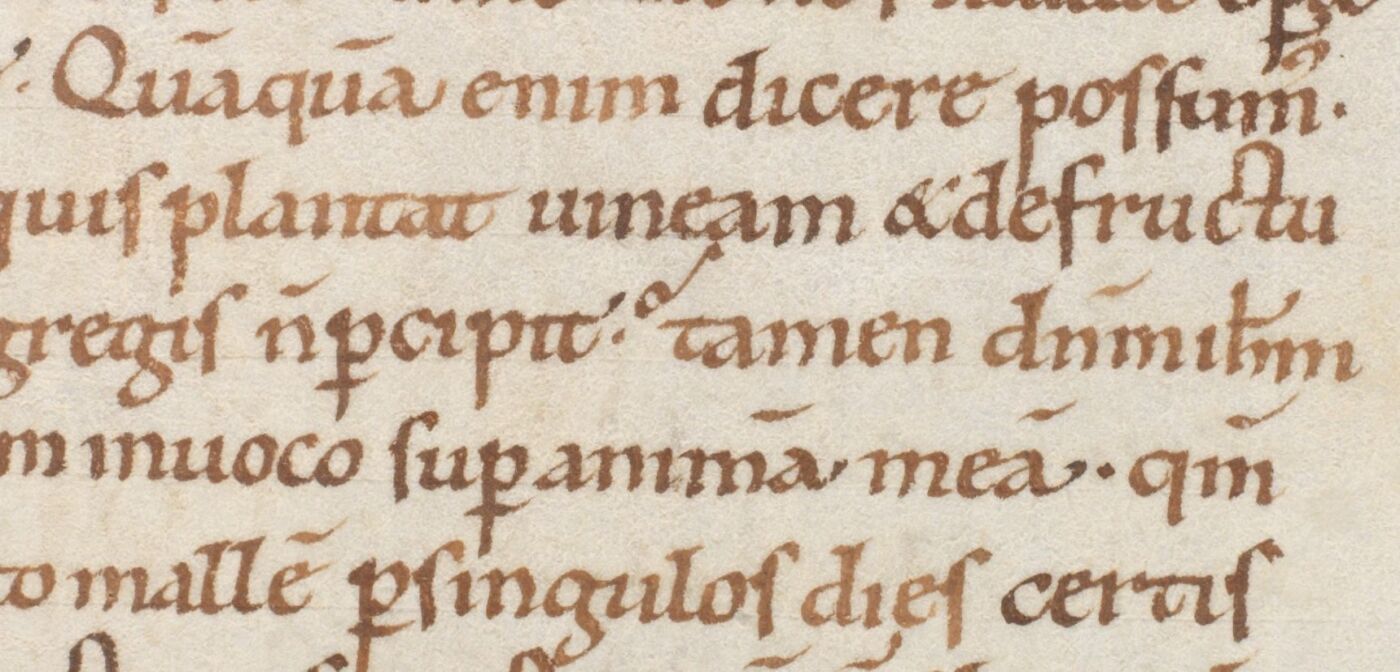 Quāquā enim dicere possum̄.
quis plantat uineam &de fructu
gregis n̄ ꝑcipit. tamen dn̄m ihm̄
m inuoco suꝑ animā meā. qm̄
to mallē ꝑ singulos dięs certis